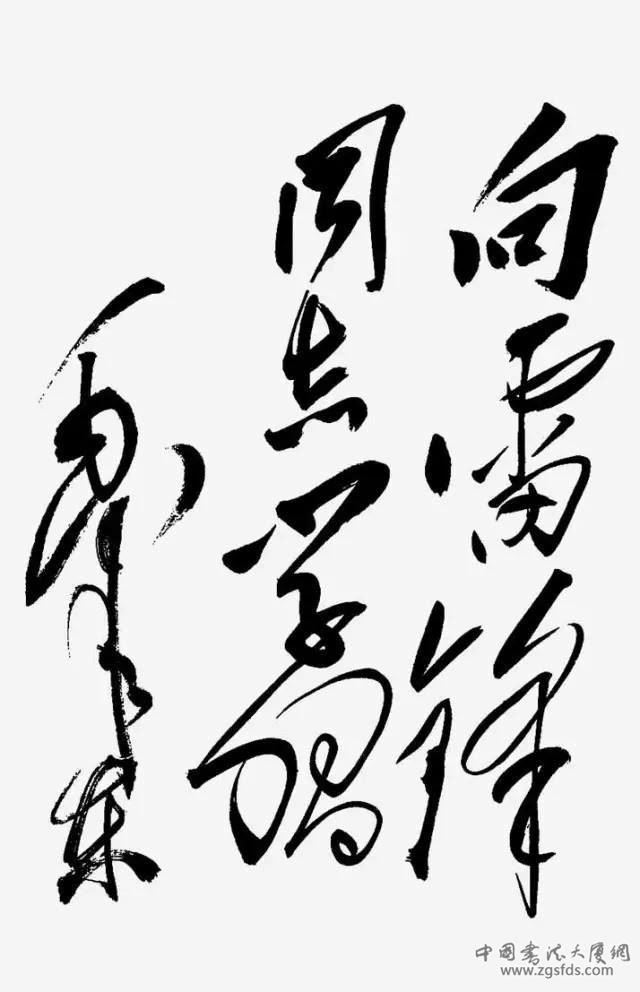 向雷锋
同志学習
毛泽东
中国書法大厦網
www.zgsfds.com